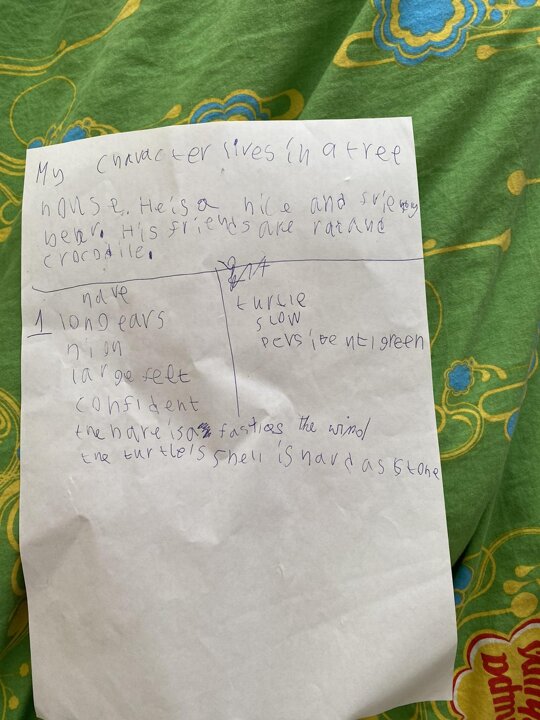 My character lives in a tree
house. He is a nice and frienby
bear. His friends are rat and
crocodile.
hare
1 long ears
large feet
confident
turtle
slow
persistent green
the hare is as fast as the wind
the turtle's shell is hard as stone